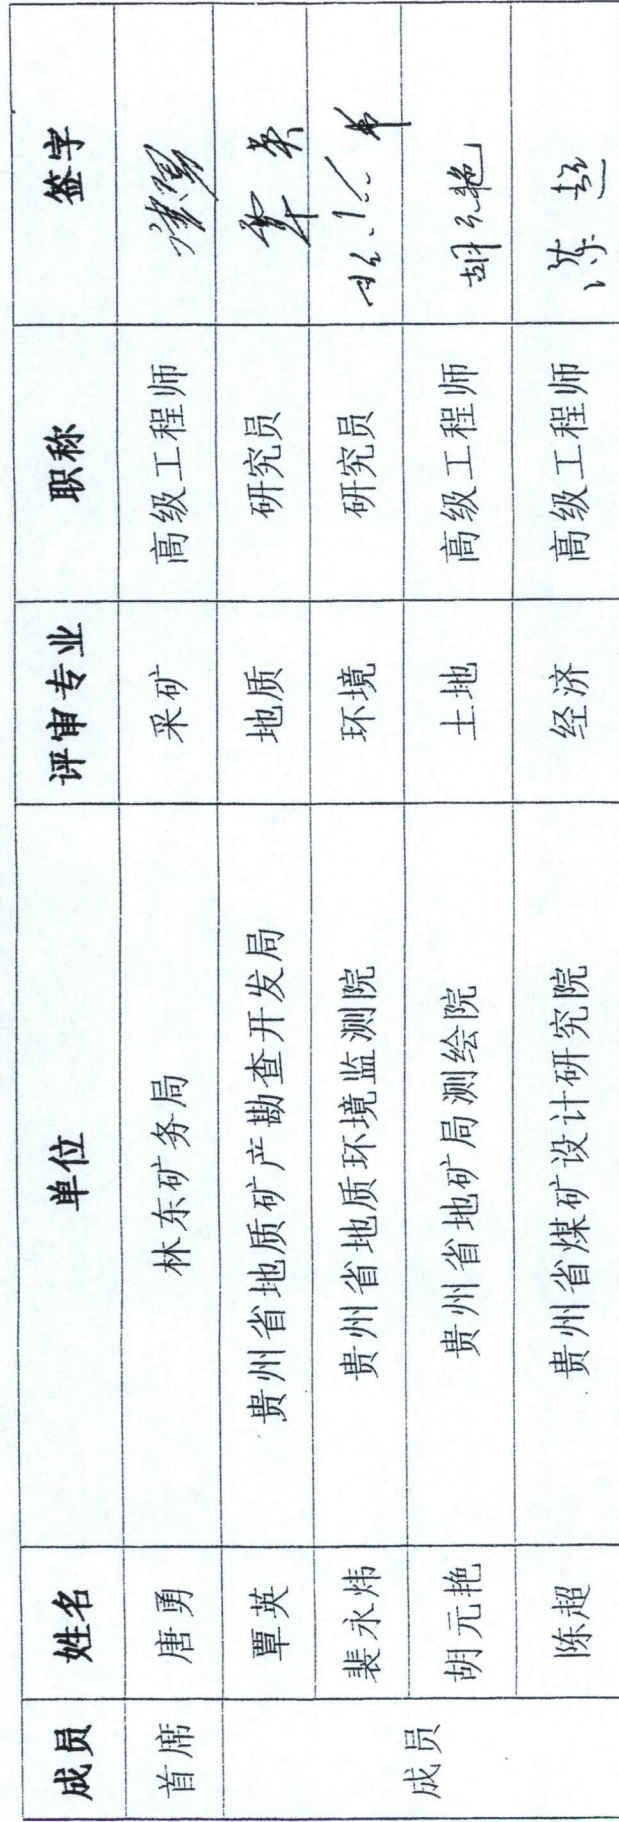 成员 姓名 单位 评审专业 职称 签字
首席 唐勇 林东矿务局 采矿 高级工程师
成员 覃英 贵州省地质矿产勘查开发局 地质 研究员 覃英
裴永炜 贵州省地质环境监测院 环境 研究员
胡元艳 贵州省地矿局测绘院 土地 高级工程师 胡元艳
陈超 贵州省煤矿设计研究院 经济 高级工程师 陈超